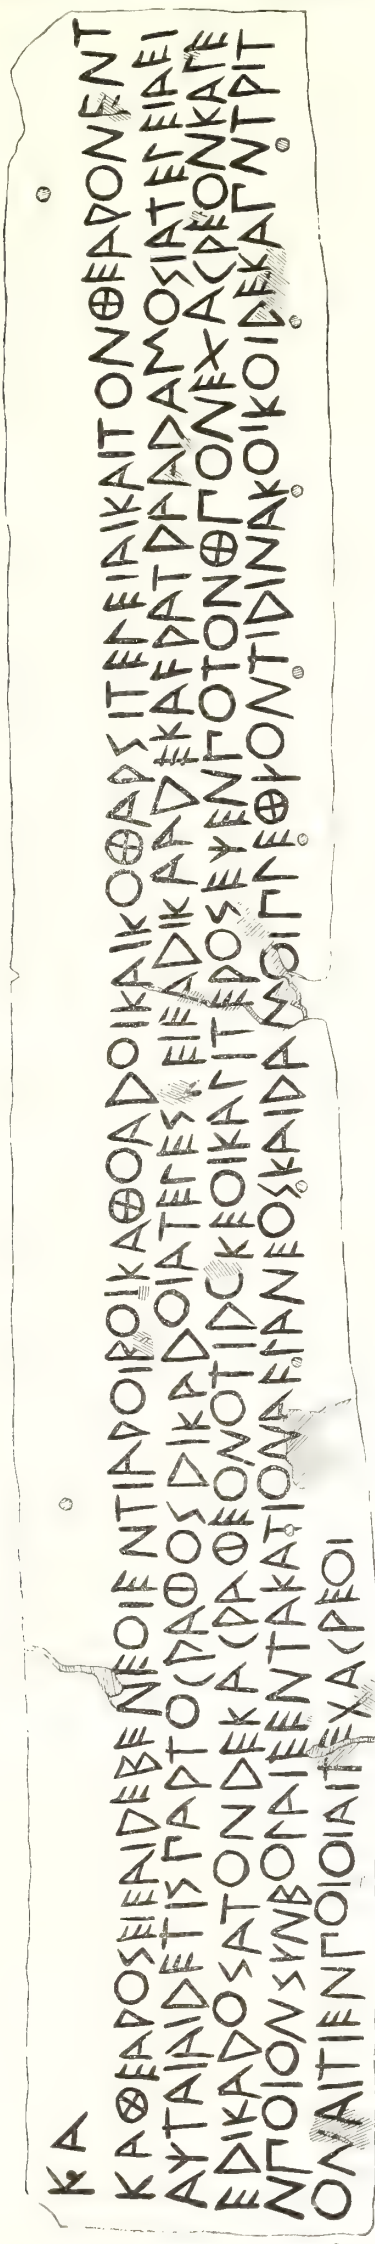 ΚΑ
ΚΑΘΕΑΡΟΣΕΙΕΑΙΔΕΒΕΝΕΟΙΕΝΤΙΑΡΟΙΒΟΙΚΑΘΟΑΔΟΙΚΑΙΚΟΘΑΡΣΙΤΕΛΕΙΑΙΚΑΙΤΟΝΘΕΑΡΟΝΕΝΤ
ΑΥΤΑΙΑΙΔΕΤΙΣΠΑΡΤΟΓΡΑΦΟΣΔΙΚΑΔΟΙΑΤΕΛΕΣΚΕΙΕΑΔΙΚΑΑΔΕΚΑϜΡΑΤΡΑΑΔΑΜΟΣΙΑΤΕΛΕΙΑΕΙ
ΕΔΙΚΑΔΟΣΑΤΟΝΔΕΚΑΓΡΑΦΕΟΝΟΤΙΔΟΚΕΟΙΚΑΛΙΤΕΡΟΣΕΧΕΝΠΟΤΟΝΘΠΟΝΕΞΑΓΡΕΟΝΚΑΙΕ
ΝΠΟΙΟΝΣΥΝΒΟΛΑΙΕΕΝΤΑΚΑΤΙΟΝΑϜΛΑΝΕΟΣΚΑΙΔΑΜΟΙΠΛΕΘΥΟΝΤΙΔΙΝΑΚΟΙΚΟΙΔΕΚΑΠΝΤΡΙΤ
ΟΝΑΙΤΙΕΝΠΟΙΟΙΑΙΤΕΞΑΓΡΕΟΙ